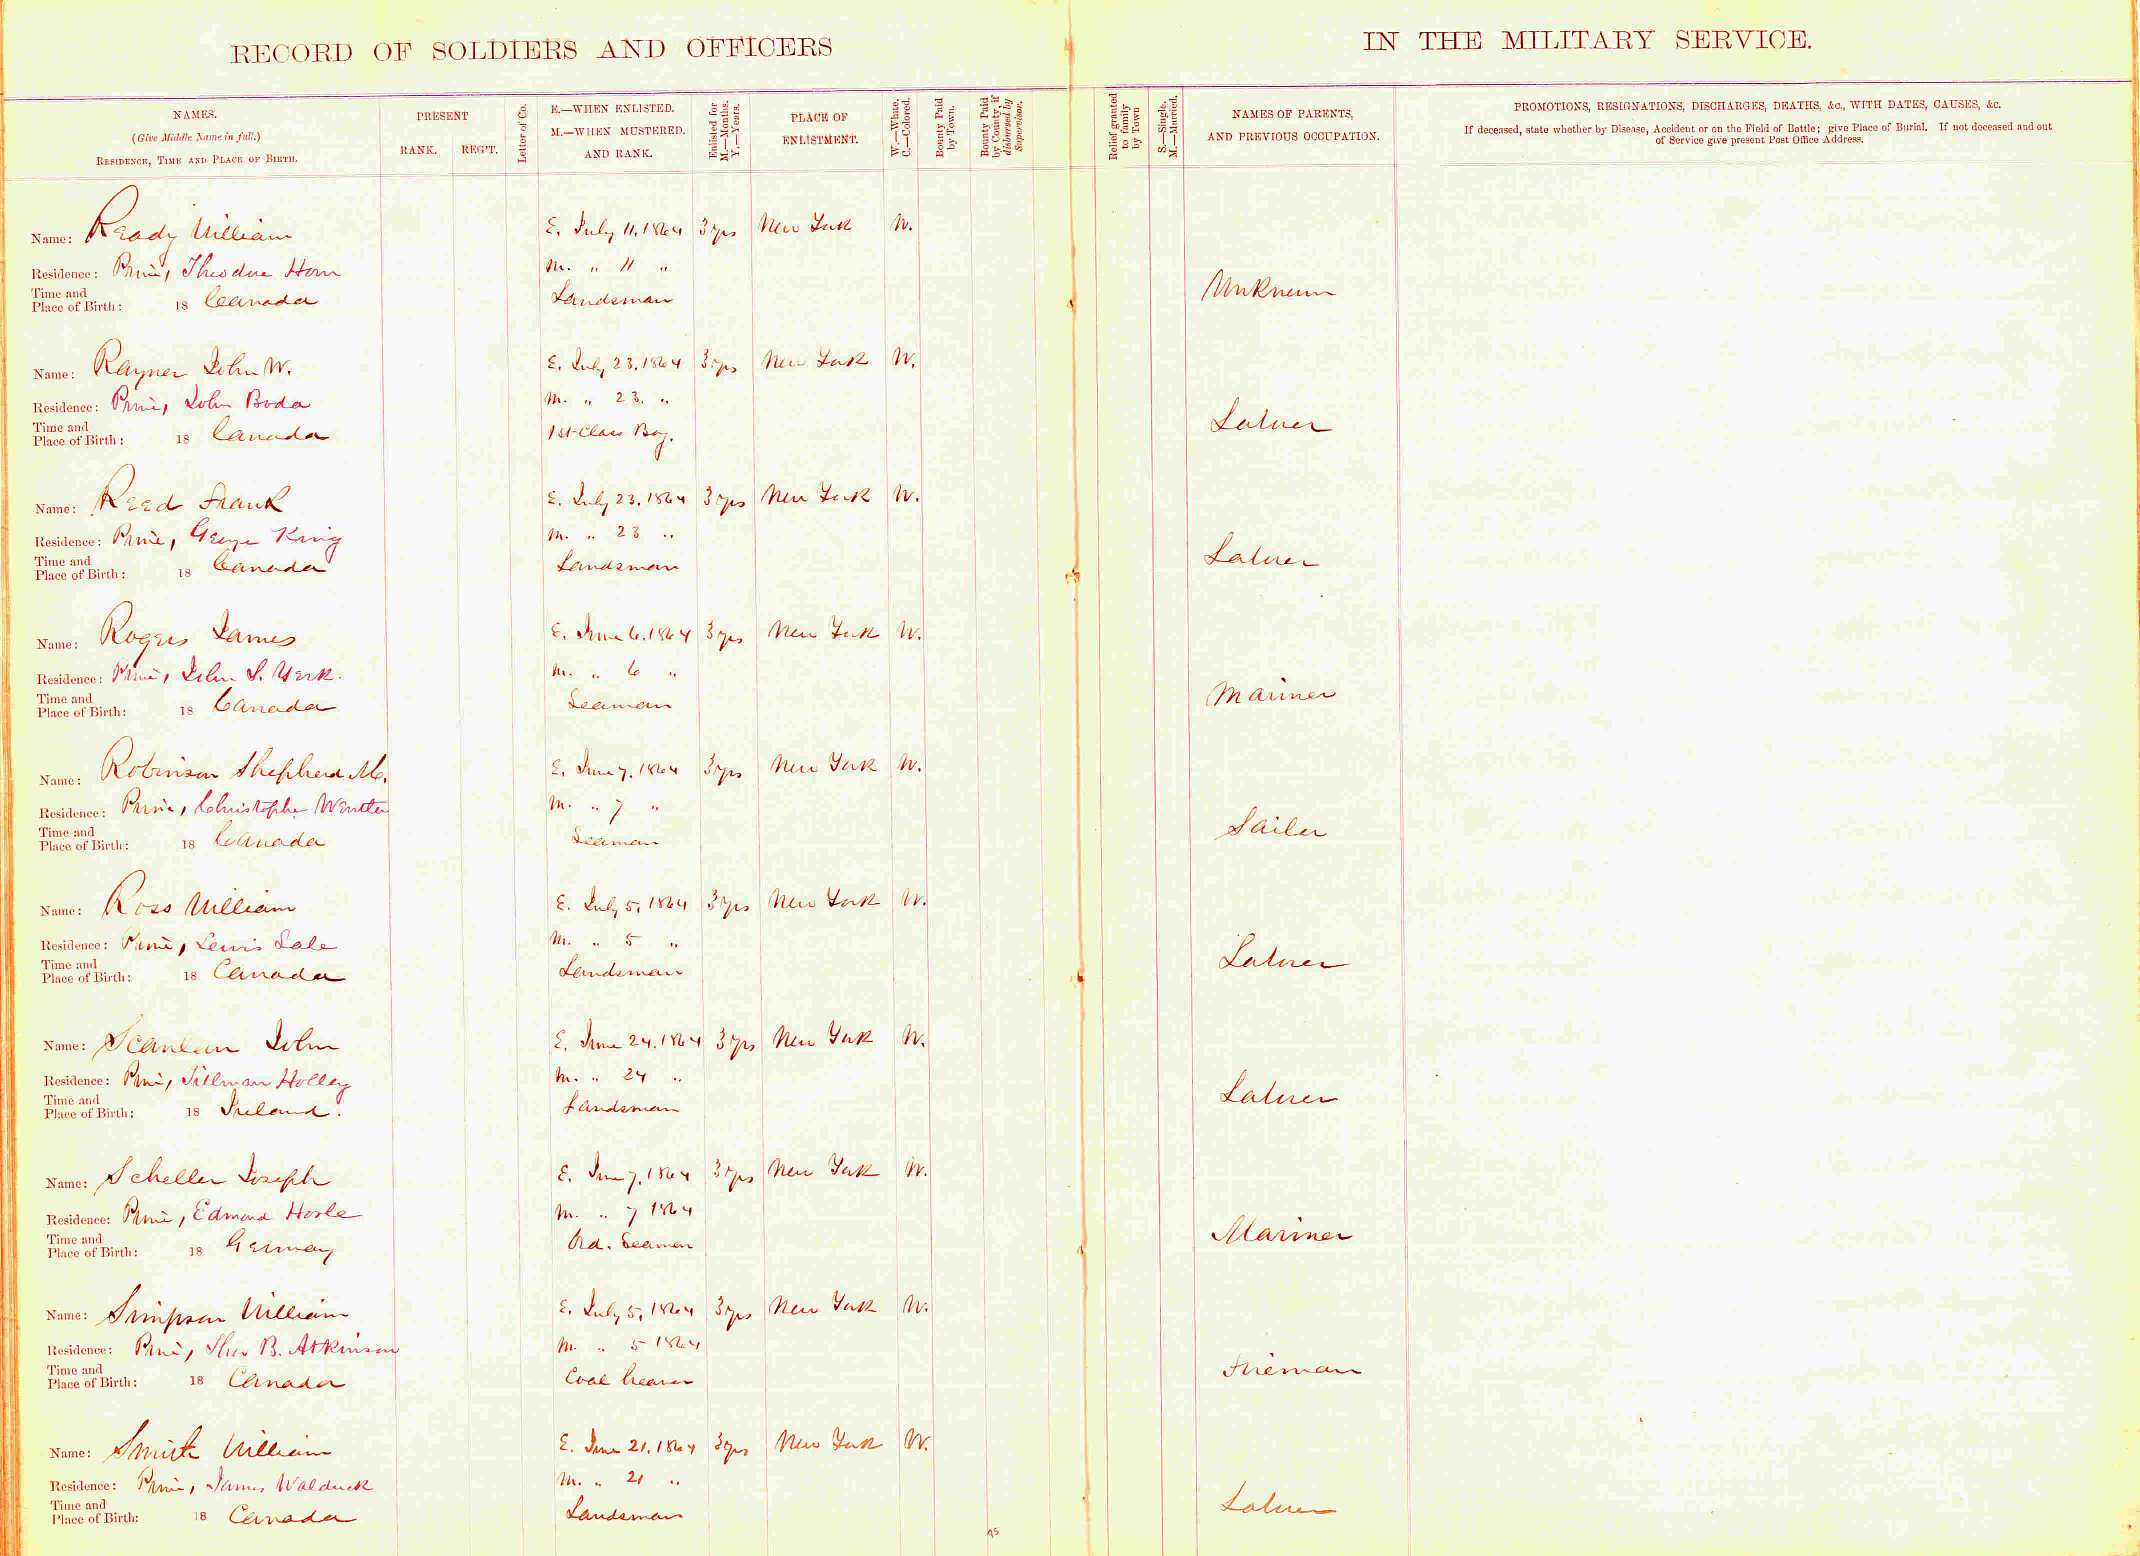 RECORD OF SOLDIERS AND OFFICERS
IN THE MILITARY SERVICE.
NAMES.
(Give Middle Name in full.)
RESIDENCE, TIME AND PLACE OF BIRTH.
PRESENT
RANK. REG'T.
Letter of Co.
E.—WHEN ENLISTED.
M.—WHEN MUSTERED.
AND RANK.
Enlisted for
M.—Months.
Y.—Years.
PLACE OF
ENLISTMENT.
W.—White.
C.—Colored.
Bounty Paid
by Town.
Bounty Paid
by County, if
disbursed by
Supervisor.
Relief granted
to family
by Town
S.—Single.
M.—Married.
NAMES OF PARENTS,
AND PREVIOUS OCCUPATION.
PROMOTIONS, RESIGNATIONS, DISCHARGES, DEATHS, &c., WITH DATES, CAUSES, &c.
If deceased, state whether by Disease, Accident or on the Field of Battle; give Place of Burial. If not deceased and out
of Service give present Post Office Address.
Name: Ready William E. July 11, 1864 3 yrs New York W.
Residence: Prin, Theodore Horn M. " 11 "
Time and
Place of Birth: 18 Canada Landsman Unknown
Name: Rayner John W. E. July 23, 1864 3 yrs New York W.
Residence: Prin, John Boda M. " 23. "
Time and
Place of Birth: 18 Canada 1st Class Boy. Laborer
Name: Reed Frank E. July 23, 1864 3 yrs New York W.
Residence: Prin, George King M. " 23 "
Time and
Place of Birth: 18 Canada Landsman Laborer
Name: Rogers James E. June 6, 1864 3 yrs New York W.
Residence: Prin, John S. Yerk. M. " 6 "
Time and
Place of Birth: 18 Canada Seaman Mariner
Name: Robinson Shepherd Mc. E. June 7, 1864 3 yrs New York W.
Residence: Prin, Christopher M. " 7 "
Time and
Place of Birth: 18 Canada Seaman Sailer
Name: Ross William E. July 5, 1864 3 yrs New York W.
Residence: Prin, Lewis Sale M. " 5 "
Time and
Place of Birth: 18 Canada Landsman Laborer
Name: Scanlan John E. June 24, 1864 3 yrs New York W.
Residence: Prin, Tillman Holley M. " 24 "
Time and
Place of Birth: 18 Ireland. Landsman Laborer
Name: Scheller Joseph E. June 7, 1864 3 yrs New York W.
Residence: Prin, Edmond M. " 7 1864
Time and
Place of Birth: 18 Germany Ord. Seaman Mariner
Name: Simpson William E. July 5, 1864 3 yrs New York W.
Residence: Prin, Thos B. Atkinson M. " 5 1864
Time and
Place of Birth: 18 Canada Coal heaver Fireman
Name: Smith William E. June 21, 1864 3 yrs New York W.
Residence: Prin, James Walduck M. " 21 "
Time and
Place of Birth: 18 Canada Landsman Laborer